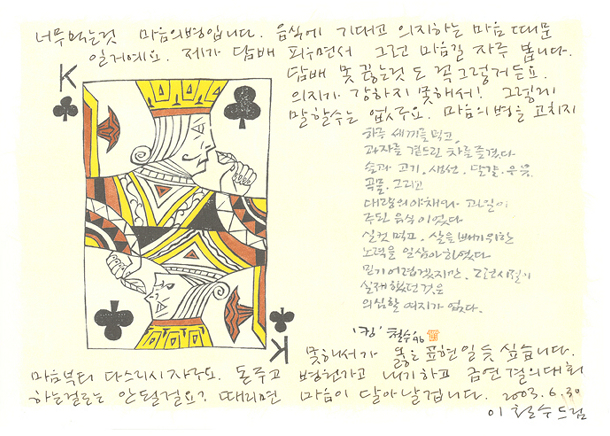 너무먹는것 마음의병입니다. 음식에 기대고 의지하는 마음때문
일거예요. 제가 담배 피우면서 그런 마음길 자주 봅니다.
담배 못 끊는것도 꼭 그렇거든요.
의지가 강하지 못해서! 그렇게
말할수는 없구요. 마음의 병을 고치지
하루 세끼를 먹고,
과자를 곁드린 차를 즐겼다
술과 고기, 생선, 달걀, 우유,
곡물, 그리고
대량의 야채와 과일이
주된 음식이었다
실컷 먹고, 살을 빼기위한
노력을 열심히 하였다
믿기 어렵겠지만, 그런시절이
실재했던 것은
의심할 여지가 없다.
K
K
'킹' 철수 96
못해서가 옳은 표현일듯 싶습니다.
마음부터 다스리시자구요. 돈주고 병원가고 내기하고 금연결의대회
하는걸로는 안될걸요? 때리면 마음이 달아날겁니다. 2003.6.30
이철수 드림